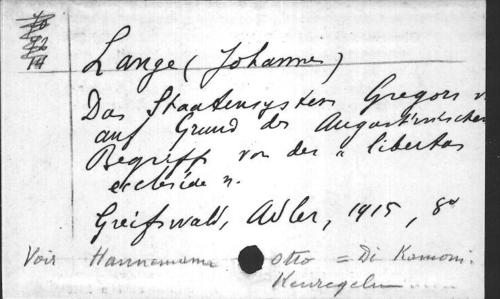 Lange (Johannes)
Das Staatensystem Gregors v
auf Grund des Augustinischen
Begriffs von der "libertas
ecclesiae".
Greifswald, Adler, 1915, 8°
Voir Hannemann Otto = Di Kanoni.
Kenregeln